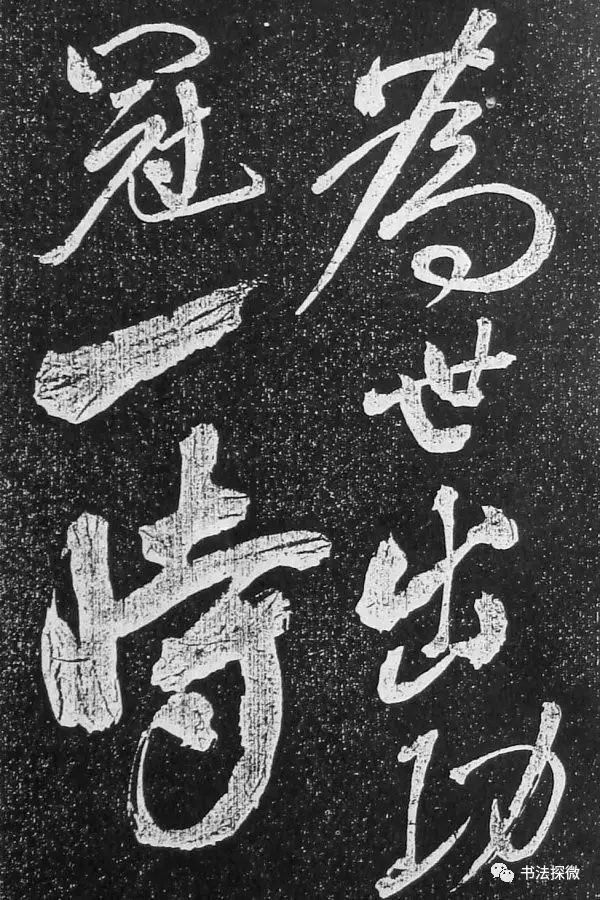 為世出功
冠一時
书法探微